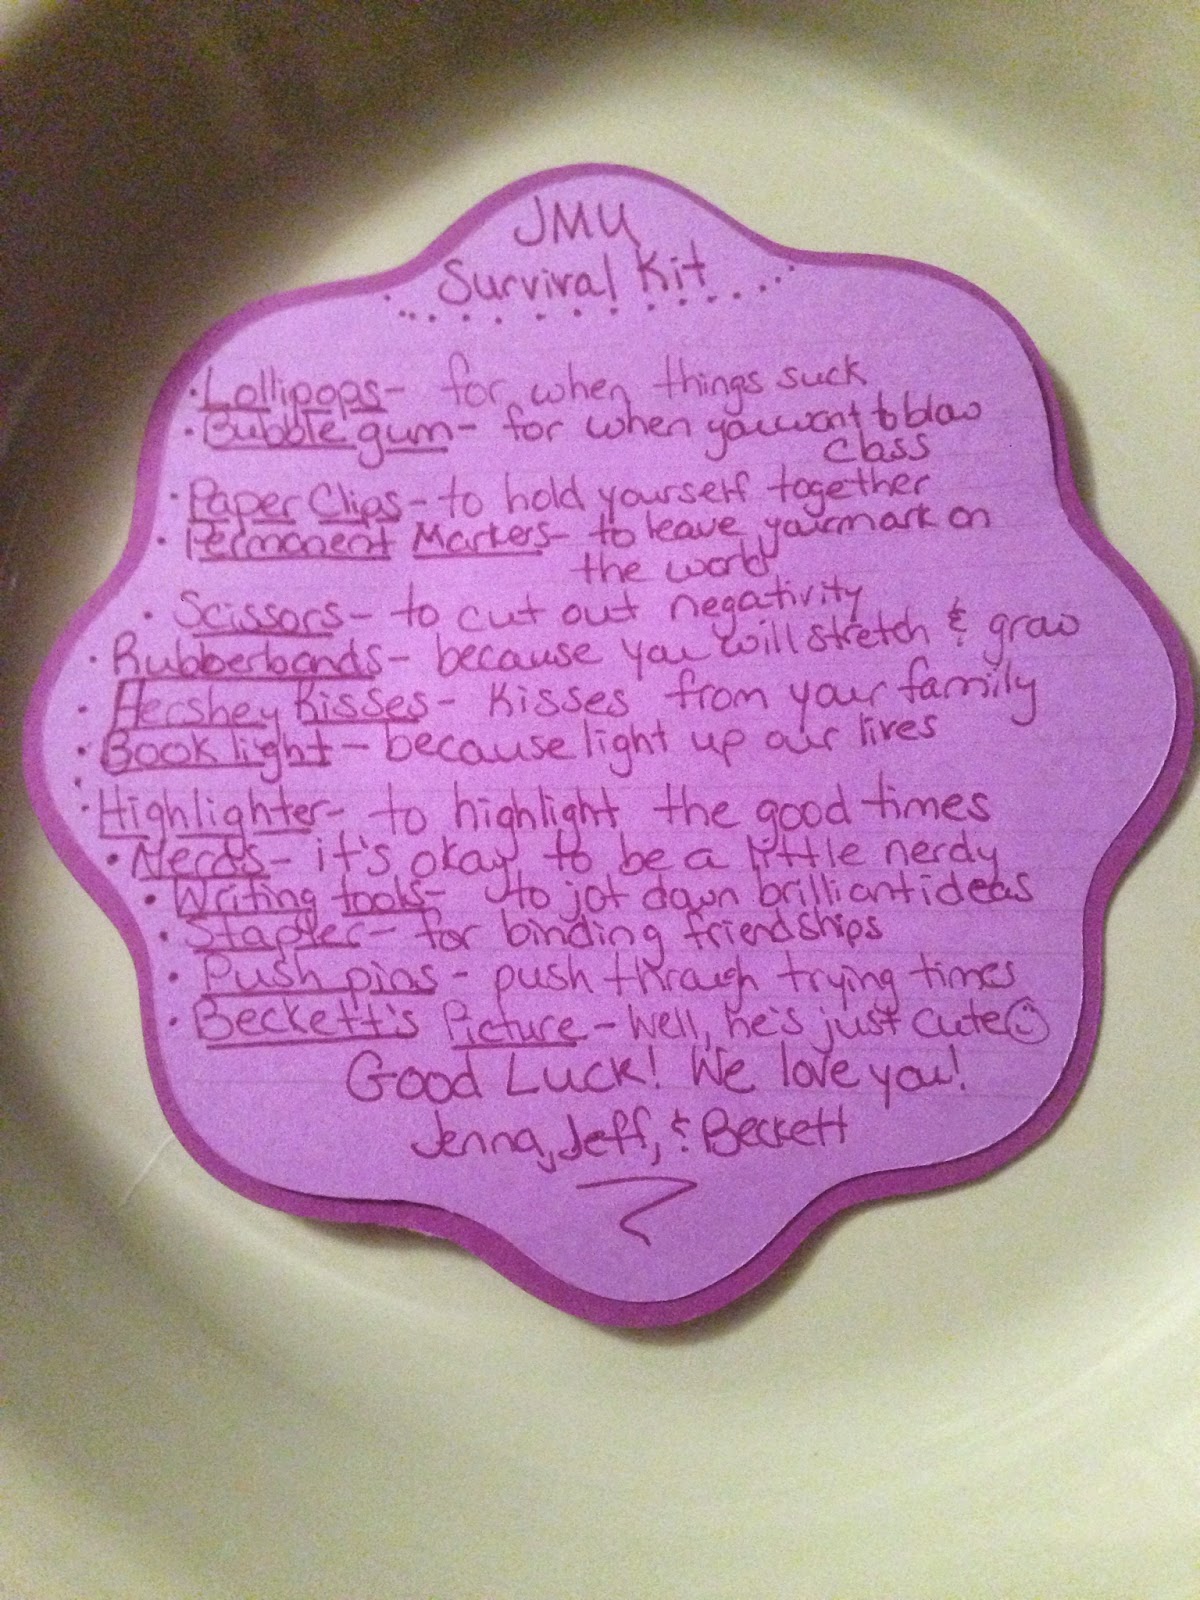 JMU
Survival Kit
· Lollipops- for when things suck
· Bubble gum- for when you want to blow
class
· Paper Clips- to hold yourself together
· Permanent Markers- to leave your mark on
the world
· Scissors- to cut out negativity
· Rubberbands- because you will stretch & grow
· Hershey Kisses- Kisses from your family
· Book light- because light up our lives
· Highlighter- to highlight the good times
· Nerds- it's okay to be a little nerdy
· Writing tools- to jot down brilliant ideas
· Stapler- for binding friendships
· Push pins- push through trying times
· Beckett's Picture- Well, he's just cute☺
Good Luck! We love you!
Jenna, Jeff, & Beckett